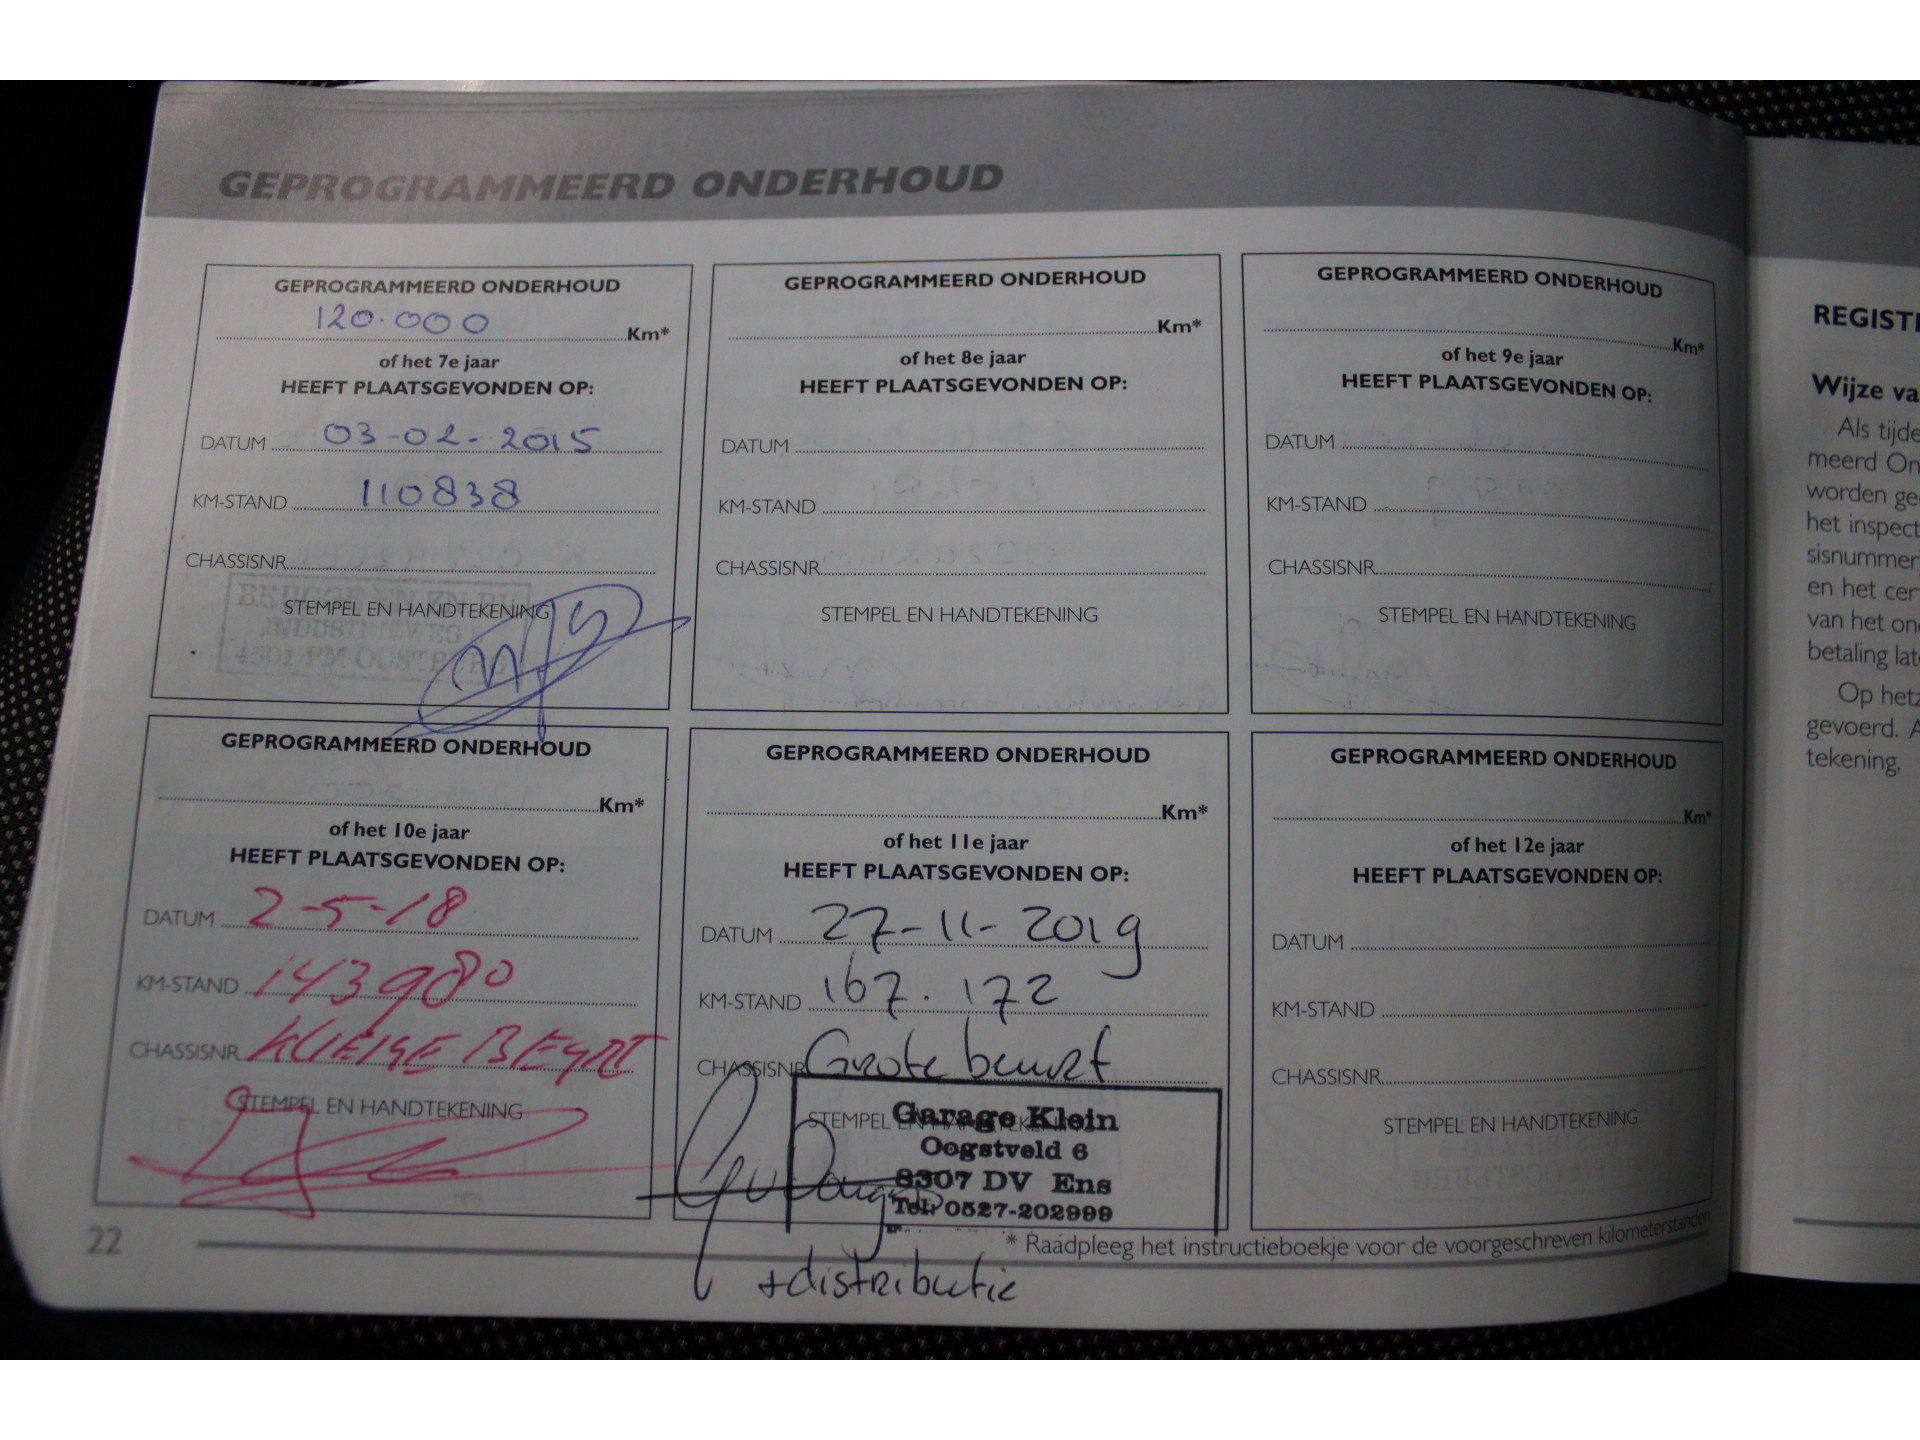 GEPROGRAMMEERD ONDERHOUD
GEPROGRAMMEERD ONDERHOUD
120.000 Km*
of het 7e jaar
HEEFT PLAATSGEVONDEN OP:
DATUM 03-02-2015
KM-STAND 110838
CHASSISNR.
STEMPEL EN HANDTEKENING
INDUSTRIEWEG
4501 PM OOSTBURG
GEPROGRAMMEERD ONDERHOUD
Km*
of het 8e jaar
HEEFT PLAATSGEVONDEN OP:
DATUM
KM-STAND
CHASSISNR.
STEMPEL EN HANDTEKENING
GEPROGRAMMEERD ONDERHOUD
Km*
of het 9e jaar
HEEFT PLAATSGEVONDEN OP:
DATUM
KM-STAND
CHASSISNR.
STEMPEL EN HANDTEKENING
GEPROGRAMMEERD ONDERHOUD
Km*
of het 10e jaar
HEEFT PLAATSGEVONDEN OP:
DATUM 2-5-18
KM-STAND 143980
CHASSISNR.
STEMPEL EN HANDTEKENING
GEPROGRAMMEERD ONDERHOUD
Km*
of het 11e jaar
HEEFT PLAATSGEVONDEN OP:
DATUM 27-11-2019
KM-STAND 167.172
CHASSISNR Grote beurt
STEMPEL EN HANDTEKENING
Garage Klein
Oogstveld 6
8307 DV Ens
Tel: 0527-202999
+distributie
GEPROGRAMMEERD ONDERHOUD
Km*
of het 12e jaar
HEEFT PLAATSGEVONDEN OP:
DATUM
KM-STAND
CHASSISNR.
STEMPEL EN HANDTEKENING
22
* Raadpleeg het instructieboekje voor de voorgeschreven kilometerstanden
REGISTR
Wijze va
Als tijde
meerd On
worden ge
het inspect
sisnummer
en het cer
van het on
betaling lat
Op hetz
gevoerd. A
tekening.